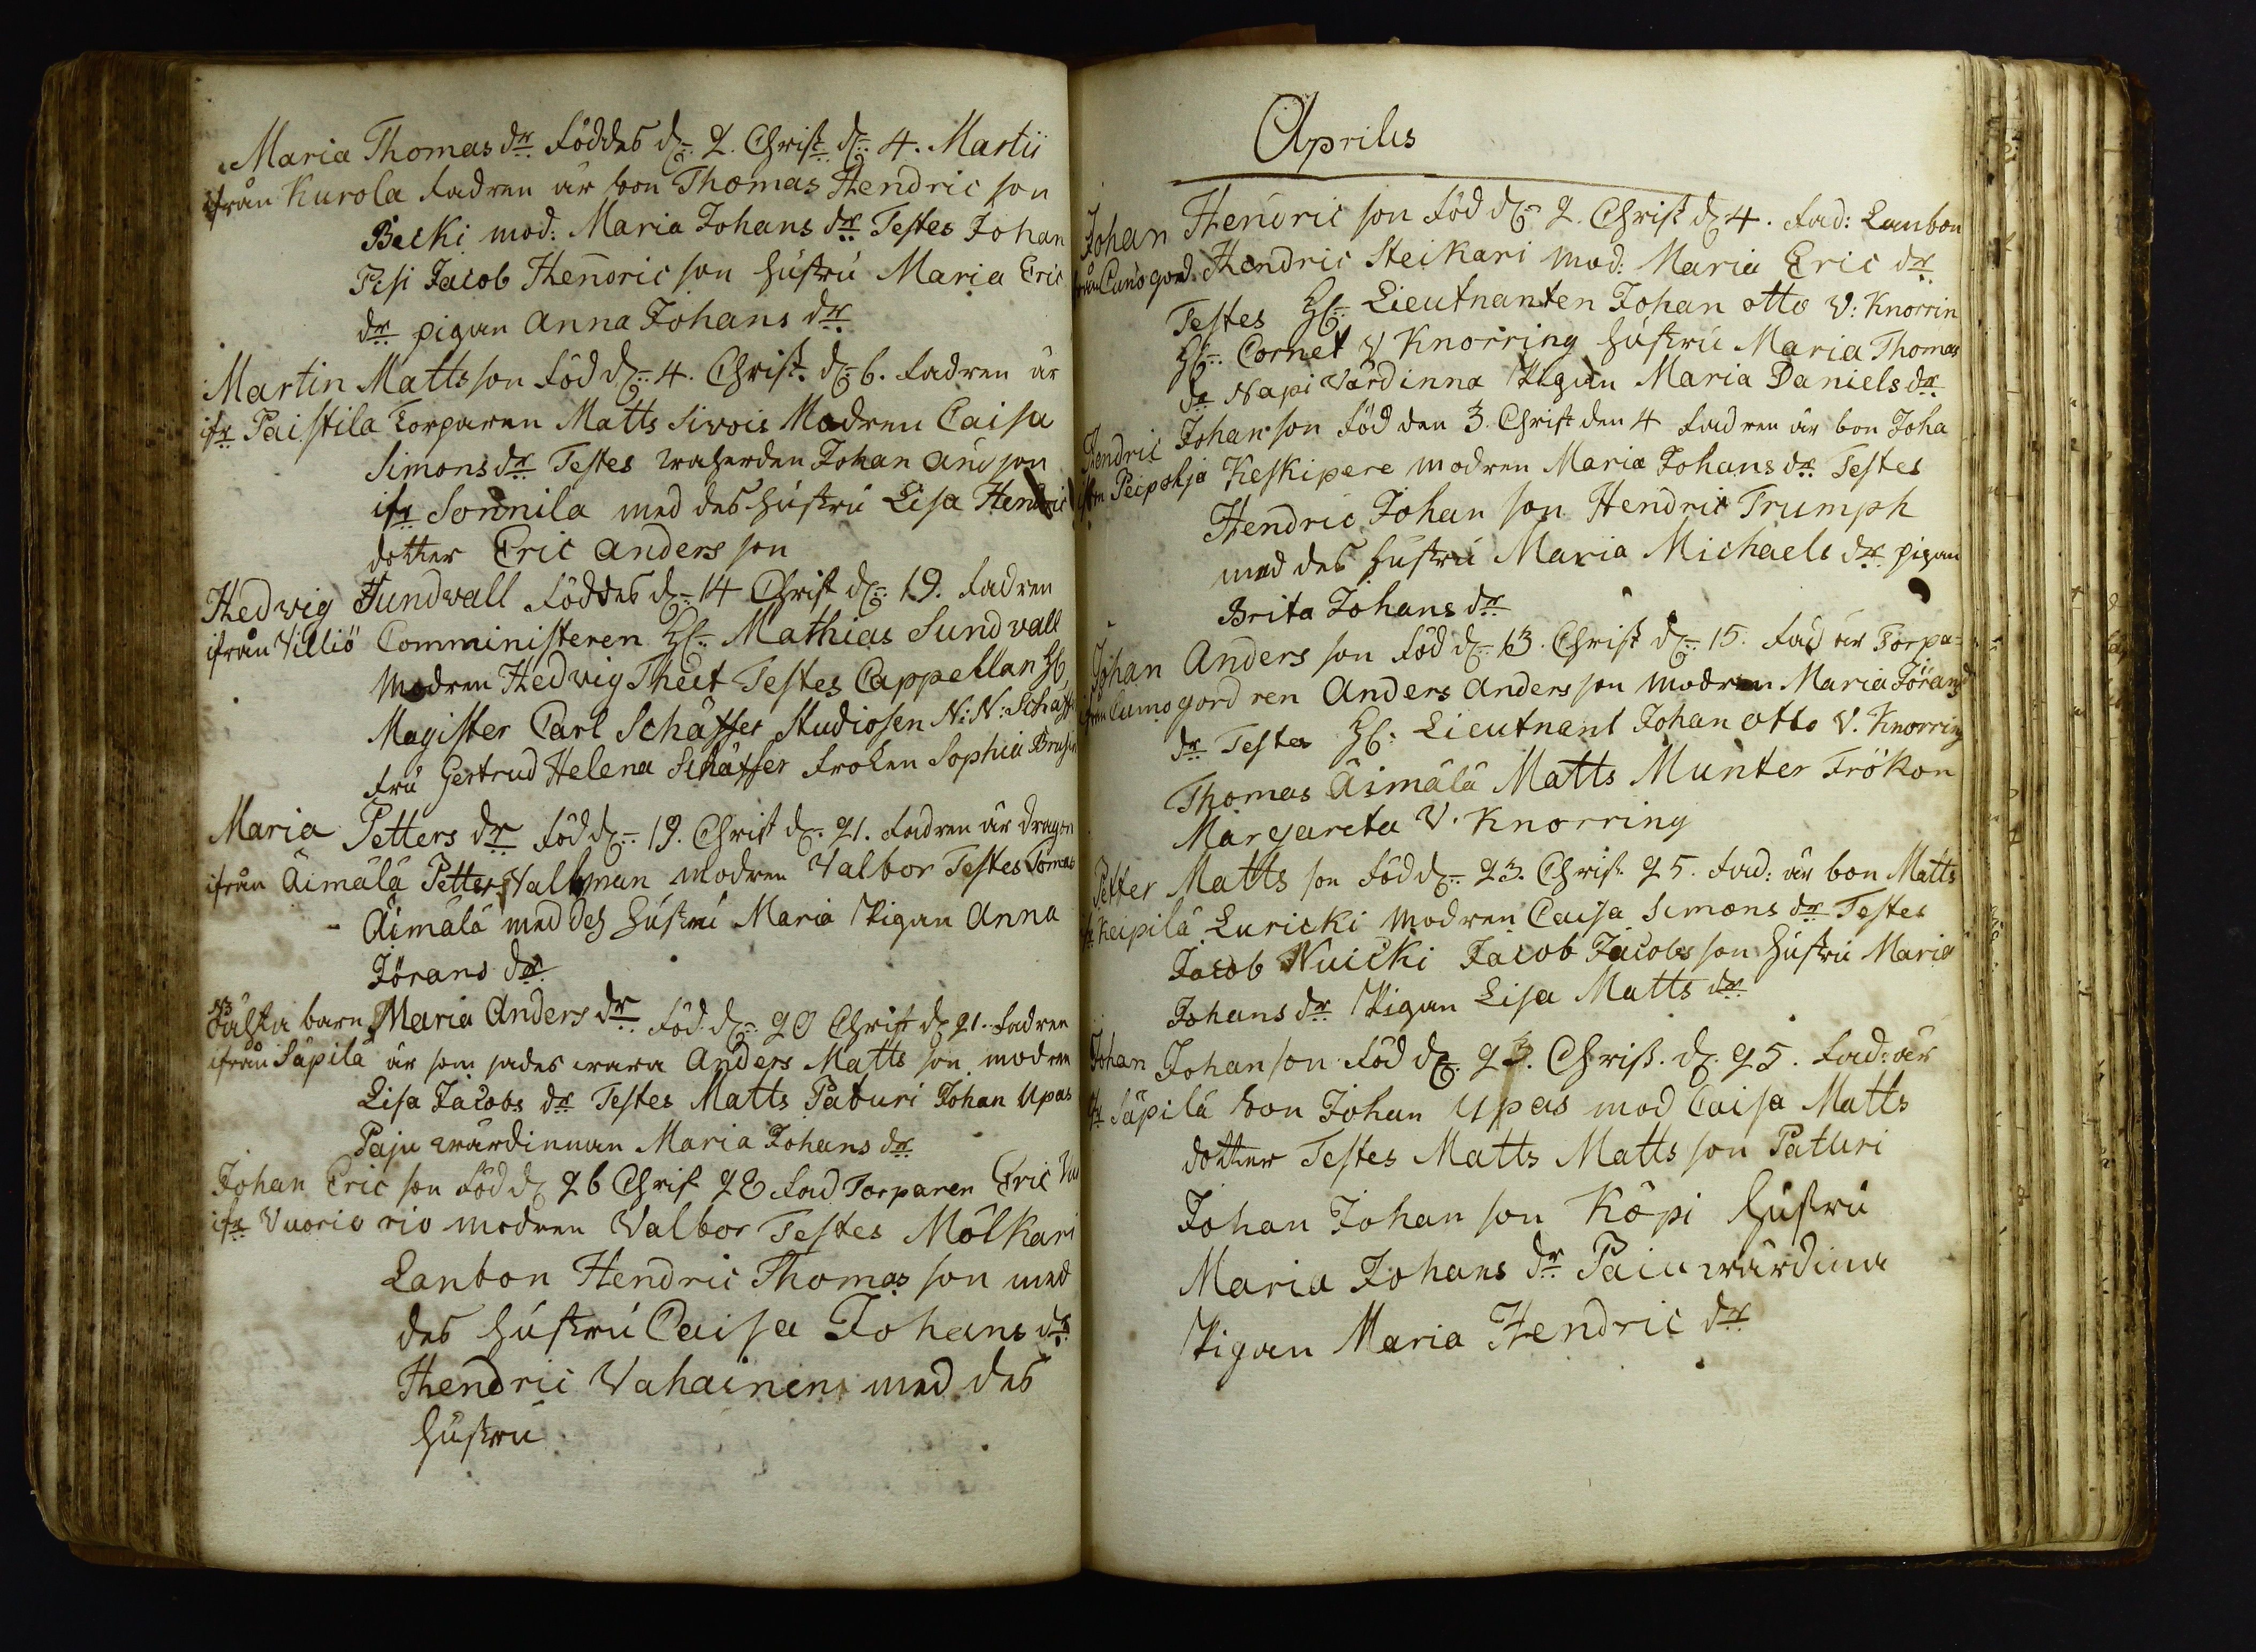 Maria Thomas dr föddes d. 2. Christ d. 4. Martii
ifrån Kurola fadren är bon Thomas Hendric son
Becki mod: Maria Johans dr Testes Johan
Pesi Jacob Hendric son hustru Maria Eric
dr pigan Anna Johans dr
Martin Matts son född d. 4. Christ. d. 6. fadren är
ifr Paistila Torparen Matts Sivois Modren Caisa
Simons dr Testes Johan
ifr Sonnila med des hustru Lisa Hendric
dotter Eric Anders son
Hedvig Sundvall föddes d. 14 Christ d. 19. fadren
ifrån Villiö Comministeren H. Mathias Sundvall
Modren Hedvig Testes Cappellan H.
Magister Carl Schäffer Studiosen N: N: Schäff
fru Gertrud Helena Schäffer froken Sophia
Maria Petters dr född d. 19. Christ d. 21. fadren är dragon
ifrån Äimälä Petter Valkman modren Valbor Testes Tomas
Äimälä med des hustru Maria Pigan Anna
Jörans dr
Oäkta barn Maria Anders dr född d. 20 Christ d. 21. fadren
ifrån Säpilä är som sades wara Anders Matts son modren
Lisa Jacobs dr Testes Matts Paturi Johan Upas
Paju wärdinnan Maria Johans dr
Johan Eric son född d. 26 Christ 28 fad Torparen Eric Vuo
ifr Vuorio rio modren Valbor Testes Mölkari
Lanbon Hendric Thomas son med
des hustru Caisa Johans dr
Hendric Vahainen med des
hustru
Aprilis
Johan Hendric son född d. 2. Christ d. 4. fad: Lanbon
Cumogord. Hendric Steikari mod: Maria Eric dr
Testes H. Lieutnanten Johan otto V: Knorrin
H. Cornet V Knorring hustru Maria Thomas
dr Napi Värdinna Pigan Maria Daniels dr
Hendric Johan son född den 3. Christ den 4 fadren är bon Joha
ifrån Peipohja Keskipere modren Maria Johans dr Testes
Hendric Johan son Hendric Trumph
med des hustru Maria Michaels dr pigan
Brita Johans dr
Johan Anders son född d. 13. Christ d. 15. fad är Torpa=
ifrån Cumogord ren Anders Anders son modren Maria Jörans
dr Testes H. Lieutnant Johan otto V. Knorring
Thomas Äimälä Matts Munter Frökon
Margareta V. Knorring
Petter Matts son född d. 23. Christ 25. fad: är bon Matts
ifr Keipilä Luricki modren Caisa Simons dr Testes
Jacob Nuicki Jacob Jacobs son hustru Maria
Johans dr Pigan Lisa Matts dr
Johan Johan son född d. 23. Christ. d. 25. fad: är
ifr Säpilä bon Johan Upas mod Caisa Matts
dotter Testes Matts Matts son Paturi
Johan Johan son Köpi hustru
Maria Johans dr Paiu wärdina
Pigan Maria Hendric dr